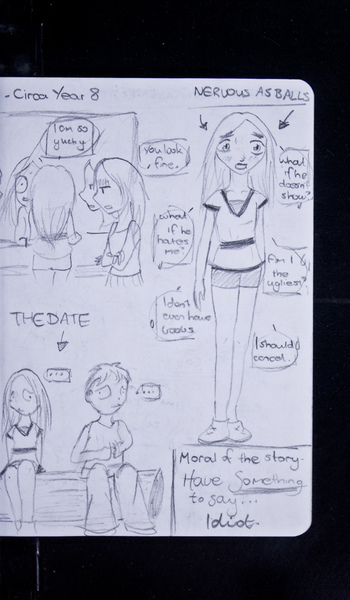 - Circa Year 8
NERVOUS AS BALLS
I am so
yucky
You look
fine.
what
if he
doesn't
show?
what
if he
hates
me?
Am I
the
ugliest?
I don't
even have
boobs
I should
cancel.
THE DATE
...
...
Moral of the story.
Have Something
to say...
Idiot.